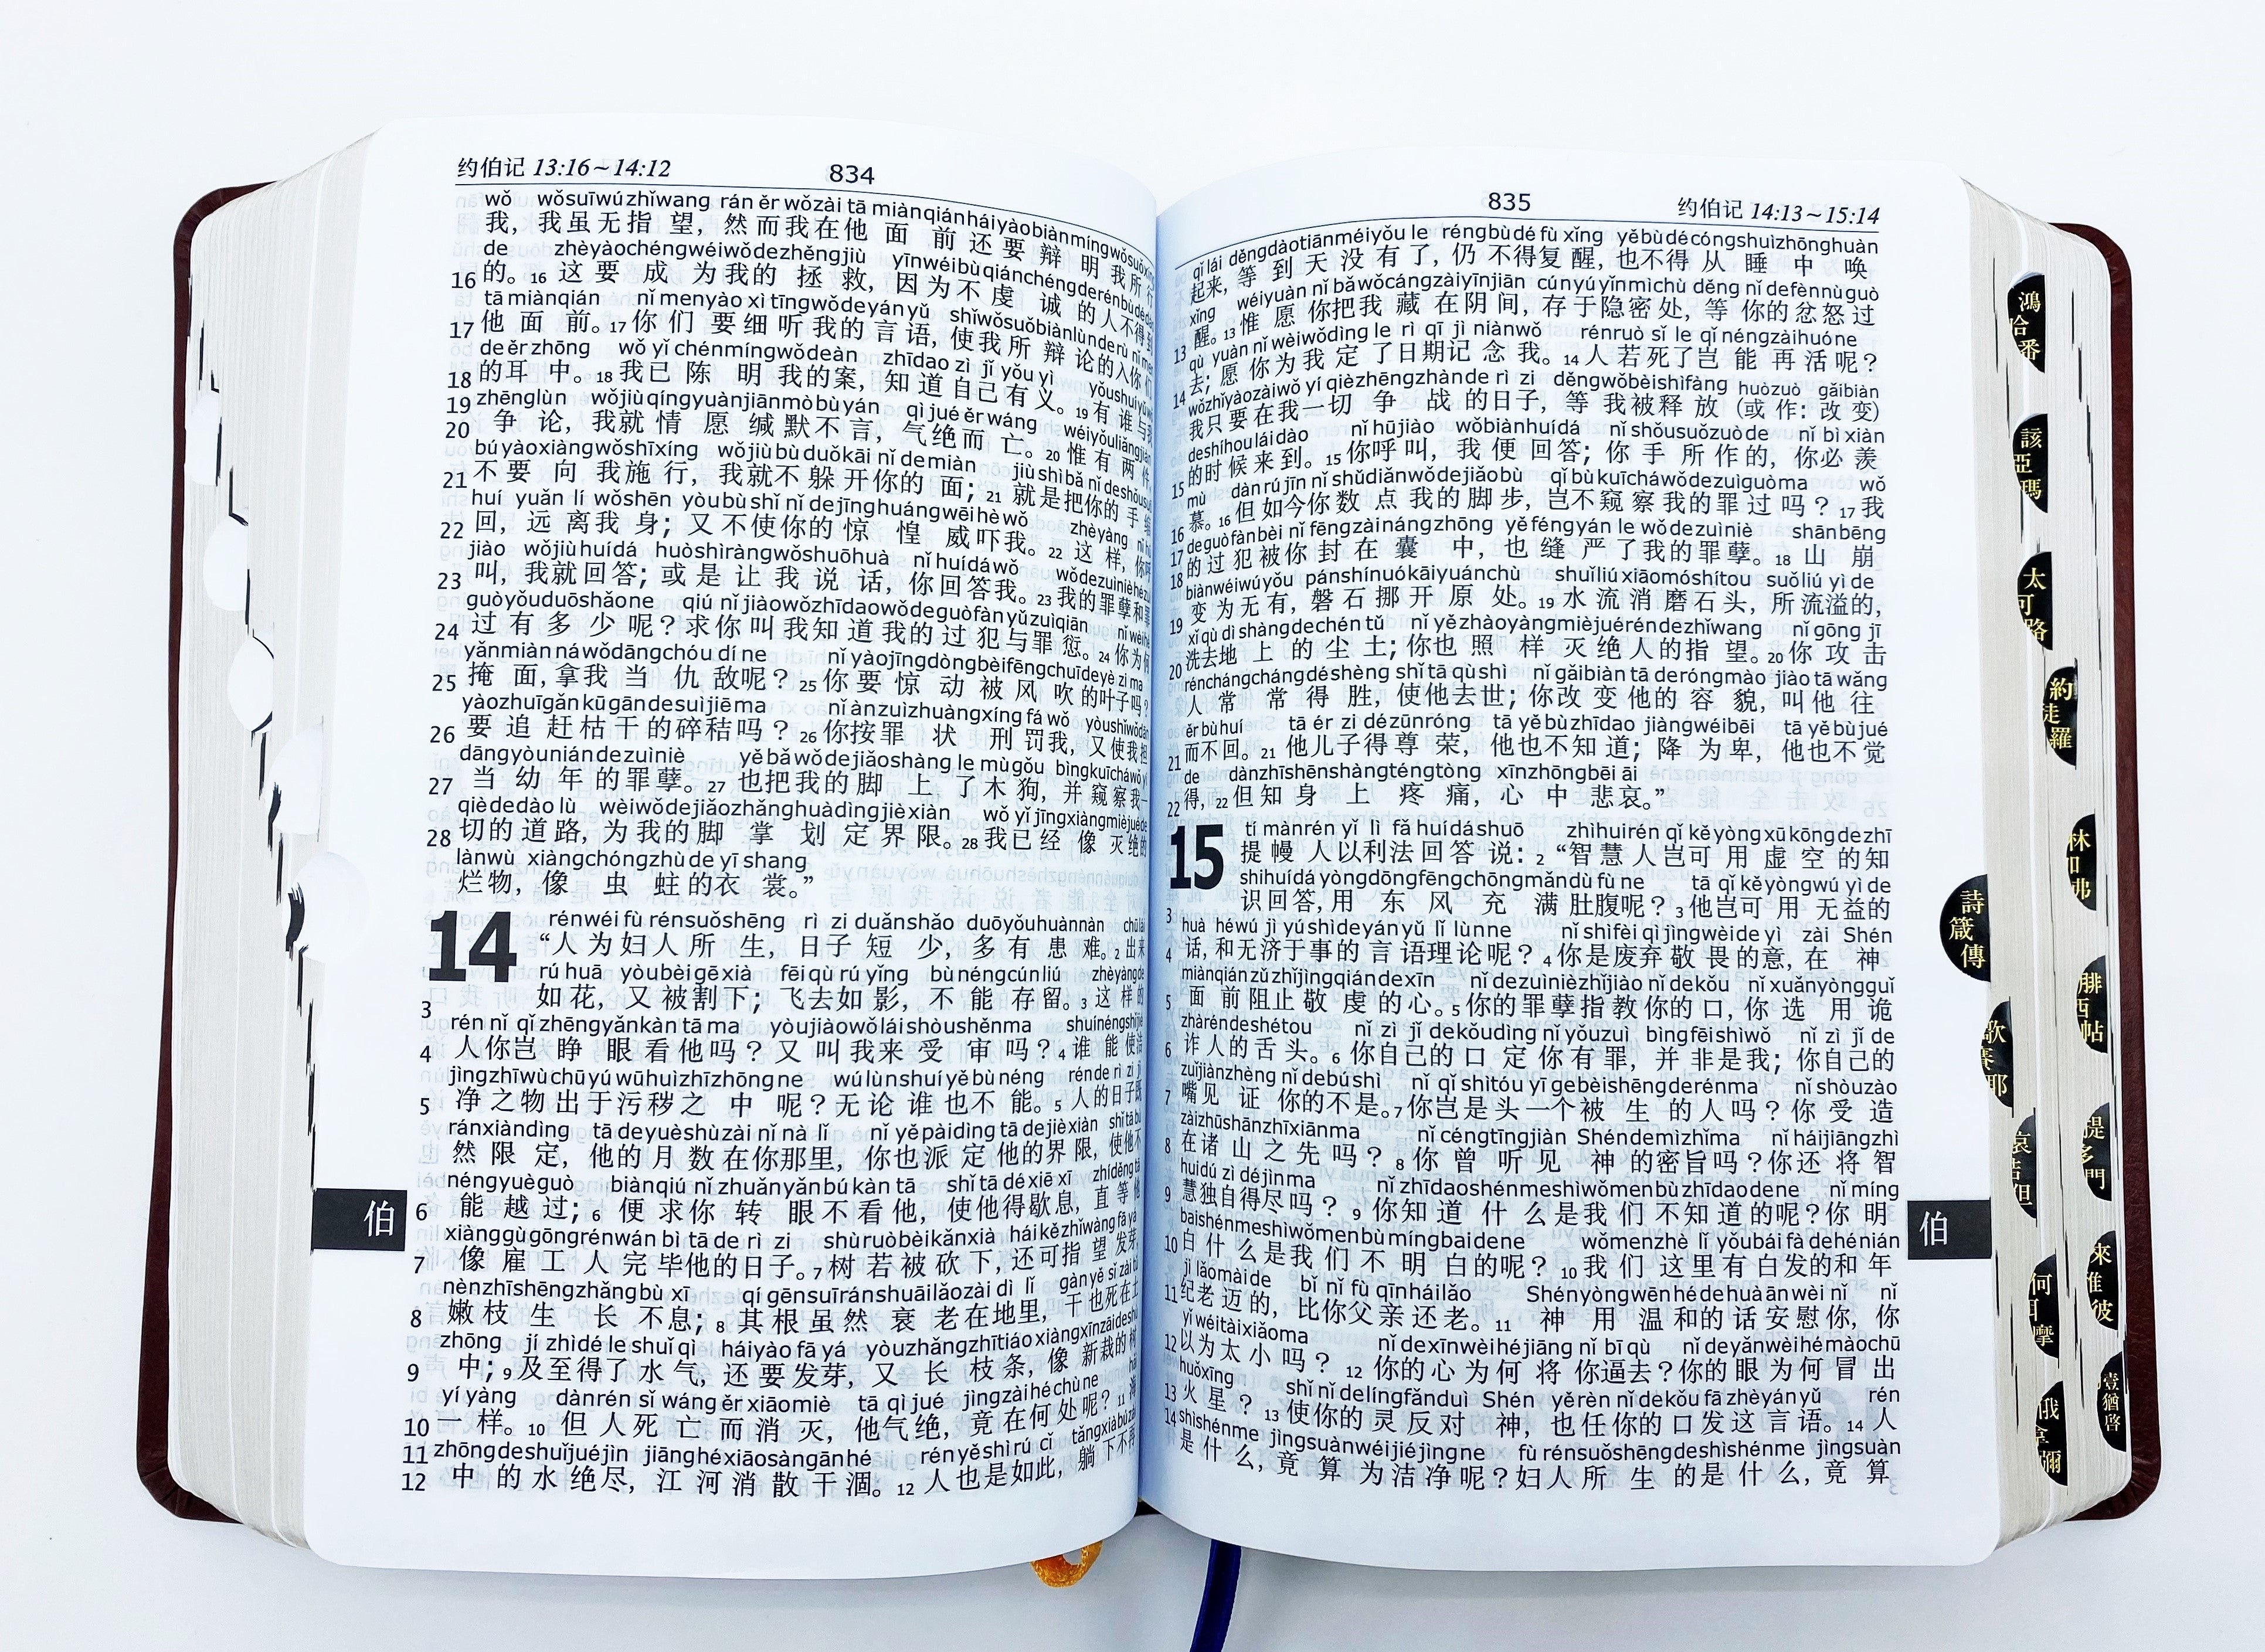 约伯记 13:16~14:12
834
wǒ wǒsuīwúzhǐwang rán ěr wǒzài tā miànqiánháiyàobiànmíngwǒsuǒxíng
我，我虽无指望，然而我在他面前还要辩明我所行
de zhèyàochéngwéiwǒdezhěngjiù yīnwéibùqiánchéngderénbùdédào
16 的。16 这要成为我的拯救，因为不虔诚的人不得到
tā miànqián nǐ menyào xì tīngwǒdeyányǔ shǐwǒsuǒbiànlùnde rù nǐ men
17 他面前。17 你们要细听我的言语，使我所辩论的入你们
de ěr zhōng wǒ yǐ chénmíngwǒdeàn zhīdao zì jǐ yǒu yì yǒushuíyǔwǒ
18 的耳中。18 我已陈明我的案，知道自己有义。19 有谁与我
zhēnglùn wǒjiùqíngyuànjiānmòbùyán qì jué ěr wáng wéiyǒuliǎngjiàn
19 争论，我就情愿缄默不言，气绝而亡。20 惟有两件
20
bú yàoxiàngwǒshīxíng wǒjiùbùduǒkāi nǐ demiàn jiùshìbǎ nǐ deshǒusuō
21 不要向我施行，我就不躲开你的面；21 就是把你的手缩
huí yuǎn lí wǒshēn yòubùshǐ nǐ dejīnghuángwēihèwǒ zhèyàng nǐ hū
22 回，远离我身；又不使你的惊惶威吓我。22 这样，你呼
jiào wǒjiùhuídá huòshìràngwǒshuōhuà nǐ huídáwǒ wǒdezuìnièhézuì
23 叫，我就回答；或是让我说话，你回答我。23 我的罪孽和罪
guòyǒuduōshǎone qiú nǐ jiàowǒzhīdaowǒdeguòfànyǔzuìqiān nǐ wèihé
24 过有多少呢？求你叫我知道我的过犯与罪愆。24 你为何
yǎnmiànnáwǒdāngchóu dí ne nǐ yàojīngdòngbèifēngchuīdeyè zi ma
25 掩面，拿我当仇敌呢？25 你要惊动被风吹的叶子吗？
yàozhuīgǎnkūgāndesuìjiēma nǐ ànzuìzhuàngxíng fá wǒ yòushǐwǒdān
26 要追赶枯干的碎秸吗？26 你按罪状刑罚我，又使我担
dāngyòuniándezuìniè yě bǎwǒdejiǎoshàng le mùgǒu bìngkuīcháwǒ yí
27 当幼年的罪孽。27 也把我的脚上了木狗，并窥察我一
qièdedào lù wèiwǒdejiǎozhǎnghuàdìngjièxiàn wǒ yǐ jīngxiàngmièjuéde
28 切的道路，为我的脚掌划定界限。28 我已经像灭绝的
lànwù xiàngchóngzhù de yī shang
烂物，像虫蛀的衣裳。”
14
rénwéi fù rénsuǒshēng rì zi duǎnshǎo duōyǒuhuànnàn chūlái
“人为妇人所生，日子短少，多有患难。2 出来
rú huā yòubèigēxià fēiqù rú yǐng bù néngcúnliú zhèyàngde
3 如花，又被割下；飞去如影，不能存留。3 这样的
rén nǐ qǐ zhēngyǎnkàn tā ma yòujiàowǒláishòushěnma shuínéngshǐjié
4 人你岂睁眼看他吗？又叫我来受审吗？4 谁能使洁
jìngzhīwùchūyú wūhuìzhīzhōng ne wúlùnshuíyě bù néng rénde rì zi jì
5 净之物出于污秽之中呢？无论谁也不能。5 人的日子既
ránxiàndìng tā deyuèshùzài nǐ nà lǐ nǐ yěpàidìng tā dejièxiàn shǐ tā bù
然限定，他的月数在你那里，你也派定他的界限，使他不
néngyuèguò biànqiú nǐ zhuǎnyǎnbúkàn tā shǐ tā dé xiē xī zhíděng tā
6 能越过；6 便求你转眼不看他，使他得歇息，直等他
xiànggùgōngrénwán bì tā de rì zi shùruòbèikǎnxià háikězhǐwàng fā yá
7 像雇工人完毕他的日子。7 树若被砍下，还可指望发芽，
nènzhīshēngzhǎngbù xī qí gēnsuīránshuāilǎozài dì lǐ gànyě sǐ zài tǔ
8 嫩枝生长不息；8 其根虽然衰老在地里，干也死在土
zhōng jí zhìdé le shuǐ qì háiyào fā yá yòuzhǎngzhītiáoxiàngxīnzāideshù
9 中；9 及至得了水气，还要发芽，又长枝条，像新栽的树
yí yàng dànrén sǐ wáng ěr xiāomiè tā qì jué jìngzài hé chù ne hǎi
10 一样。10 但人死亡而消灭，他气绝，竟在何处呢？11 海
11 zhōngdeshuǐjuéjìn jiānghéxiāosàngānhé rényěshìrú cǐ tǎngxiàbúzài
12 中的水绝尽，江河消散干涸。12 人也是如此，躺下不再
伯
835
约伯记 14:13~15:14
qǐ lái děngdàotiānméiyǒu le réngbùdé fù xǐng yěbùdécóngshuìzhōnghuàn
起来，等到天没有了，仍不得复醒，也不得从睡中唤
xǐng wéiyuàn nǐ bǎwǒcángzàiyīnjiān cúnyúyǐnmìchù děng nǐ defènnùguò
13 醒。13 惟愿你把我藏在阴间，存于隐密处，等你的忿怒过
qù yuàn nǐ wèiwǒdìng le rì qī jì niànwǒ rénruò sǐ le qǐ néngzàihuóne
14 去；愿你为我定了日期记念我。14 人若死了岂能再活呢？
wǒzhǐyàozàiwǒ yí qièzhēngzhànde rì zi děngwǒbèishìfàng huòzuò gǎibiàn
我只要在我一切争战的日子，等我被释放（或作：改变）
deshíhouláidào nǐ hūjiào wǒbiànhuídá nǐ shǒusuǒzuòde nǐ bì xiàn
15 的时候来到。15 你呼叫，我便回答；你手所作的，你必羡
mù dàn rú jīn nǐ shǔdiǎnwǒdejiǎobù qǐ bù kuīcháwǒdezuìguòma wǒ
16 慕。16 但如今你数点我的脚步，岂不窥察我的罪过吗？17 我
deguòfànbèi nǐ fēngzàinángzhōng yěféngyán le wǒdezuìniè shānbēng
17 的过犯被你封在囊中，也缝严了我的罪孽。18 山崩
18 biànwéiwúyǒu pánshínuókāiyuánchù shuǐliúxiāomóshítou suǒliú yì de
19 变为无有，磐石挪开原处。19 水流消磨石头，所流溢的，
xǐ qù dì shàngdechén tǔ nǐ yězhàoyàngmièjuéréndezhǐwang nǐ gōng jī
20 洗去地上的尘土；你也照样灭绝人的指望。20 你攻击
réncháng cháng déshèng shǐ tā qùshì nǐ gǎibiàn tā deróngmào jiào tā wǎng
人常常得胜，使他去世；你改变他的容貌，叫他往
ér bù huí tā ér zi dé zūnróng tā yě bù zhīdao jiàngwéibēi tā yě bù jué
21 而不回。21 他儿子得尊荣，他也不知道；降为卑，他也不觉
de dànzhīshēnshàngténgtòng xīnzhōngbēi āi
22 得，22 但知身上疼痛，心中悲哀。”
15
tí mànrén yǐ lì fǎ huídáshuō zhìhuìrén qǐ kěyòngxūkōngdezhī
提幔人以利法回答说：2 “智慧人岂可用虚空的知
shihuídáyòngdōngfēngchōngmǎndù fù ne tā qǐ kěyòngwú yì de
3 识回答，用东风充满肚腹呢？3 他岂可用无益的
huà héwú jì yúshìdeyányǔ lǐ lùnne nǐ shìfèi qì jìngwèide yì zài Shén
4 话，和无济于事的言语理论呢？4 你是废弃敬畏的意，在神
miànqiánzǔzhǐjìngqiándexīn nǐ dezuìnièzhǐjiào nǐ dekǒu nǐ xuǎnyòngguǐ
5 面前阻止敬虔的心。5 你的罪孽指教你的口，你选用诡
zhàréndeshétou nǐ zì jǐ dekǒudìng nǐ yǒuzuì bìngfēishìwǒ nǐ zì jǐ de
6 诈人的舌头。6 你自己的口定你有罪，并非是我；你自己的
zuǐjiànzhèng nǐ debúshì nǐ qǐ shìtóu yī gebèishēngderénma nǐ shòuzào
7 嘴见证你的不是。7 你岂是头一个被生的人吗？你受造
zàizhūshānzhīxiānma nǐ céngtīngjiàn Shéndemìzhǐma nǐ háijiāngzhì
8 在诸山之先吗？8 你曾听见神的密旨吗？你还将智
huìdú zì déjìnma nǐ zhīdaoshénmeshìwǒmenbù zhīdaodene nǐ míng
9 慧独自得尽吗？9 你知道什么是我们不知道的呢？你明
baishénmeshìwǒmenbùmíngbaidene wǒmenzhè lǐ yǒubái fà dehénián
10 白什么是我们不明白的呢？10 我们这里有白发的和年
jì lǎomàide bǐ nǐ fù qīnháilǎo Shényòngwēnhédehuàānwèi nǐ nǐ
11 纪老迈的，比你父亲还老。11 神用温和的话安慰你，你
yǐ wéitàixiǎoma nǐ dexīnwèihéjiāng nǐ bī qù nǐ deyǎnwèihémàochū
12 以为太小吗？12 你的心为何将你逼去？你的眼为何冒出
huǒxīng shǐ nǐ delíngfǎnduì Shén yěrèn nǐ dekǒu fā zhèyányǔ rén
13 火星？13 使你的灵反对神，也任你的口发这言语。14 人
14 shìshénme jìngsuànwéijiéjìngne fù rénsuǒshēngdeshìshénme jìngsuàn
是什么，竟算为洁净呢？妇人所生的是什么，竟算
伯
鴻
哈番
該亞瑪
太可路
約徒羅
林加弗
詩箴傳
腓西帖
歌賽耶
提多門
哀結但
來雅彼
何耳摩
壹猶啓
俄拿彌